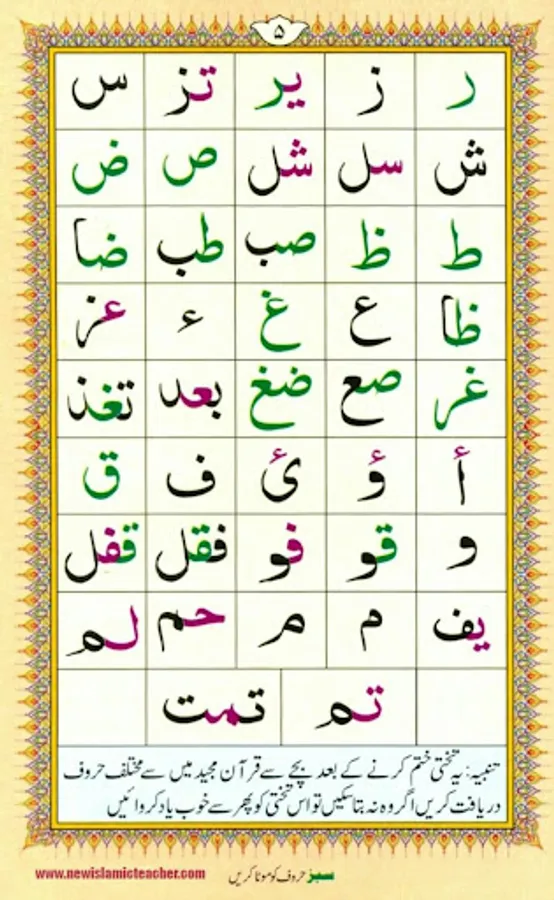 ۵
ر ز یر تز س
ش سل شل ص ض
ط ظ صب طب ضا
ظا ع غ ء عز
غر صع ضغ بعد تغذ
أ ؤ ئ ف ق
و قو فو فقل قفل
یف م م حم لم
تم تمت
تنبیہ: یہ تختی ختم کرنے کے بعد بچے سے قرآن مجید میں سے مختلف حروف
دریافت کریں اگر وہ نہ بتا سکیں تو اس تختی کو پھر سے خوب یاد کروائیں
سبز حروف کو موٹا کریں
www.newislamicteacher.com